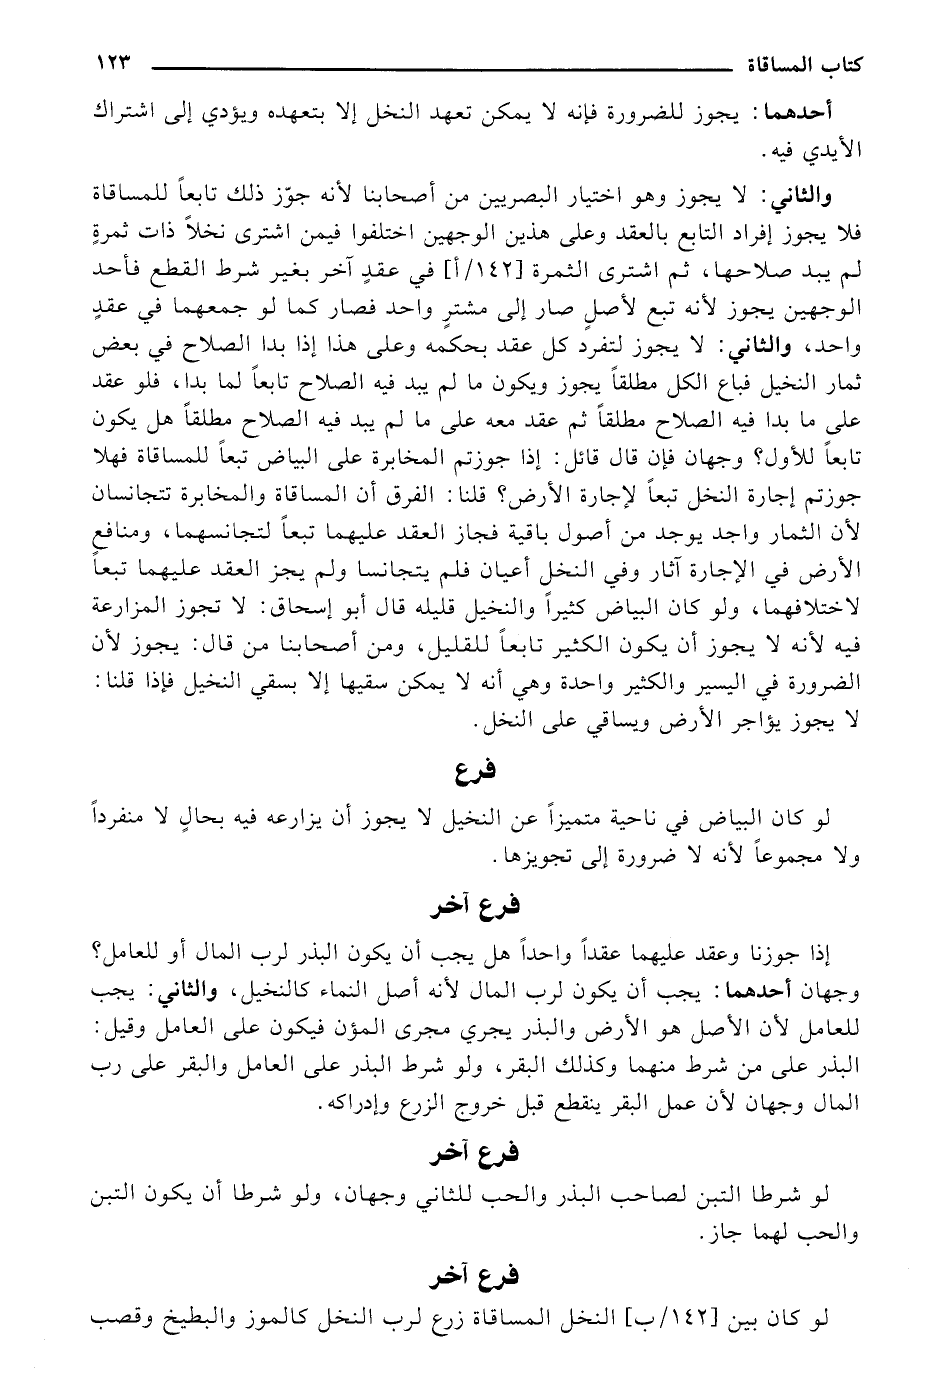 كتاب المساقاة ١٢٣
أحدهما: يجوز للضرورة فإنه لا يمكن تعهد النخل إلا بتعهده ويؤدي إلى اشتراك
الأيدي فيه.
والثاني: لا يجوز وهو اختيار البصريين من أصحابنا لأنه جوّز ذلك تابعاً للمساقاة
فلا يجوز إفراد التابع بالعقد وعلى هذين الوجهين اختلفوا فيمن اشترى نخلاً ذات ثمرةٍ
لم يبد صلاحها، ثم اشترى الثمرة [١٤٢/أ] في عقدٍ آخر بغير شرط القطع فأحد
الوجهين يجوز لأنه تبع لأصلٍ صار إلى مشترٍ واحد فصار كما لو جمعهما في عقدٍ
واحد، والثاني: لا يجوز لتفرد كل عقد بحكمه وعلى هذا إذا بدا الصلاح في بعض
ثمار النخيل فباع الكل مطلقاً يجوز ويكون ما لم يبد فيه الصلاح تابعاً لما بدا، فلو عقد
على ما بدا فيه الصلاح مطلقاً ثم عقد معه على ما لم يبد فيه الصلاح مطلقاً هل يكون
تابعاً للأول؟ وجهان فإن قال قائل: إذا جوزتم المخابرة على البياض تبعاً للمساقاة فهلا
جوزتم إجارة النخل تبعاً لإجارة الأرض؟ قلنا: الفرق أن المساقاة والمخابرة تتجانسان
لأن الثمار واجد يوجد من أصول باقية فجاز العقد عليهما تبعاً لتجانسهما، ومنافع
الأرض في الإجارة آثار وفي النخل أعيان فلم يتجانسا ولم يجز العقد عليهما تبعاً
لاختلافهما، ولو كان البياض كثيراً والنخيل قليله قال أبو إسحاق: لا تجوز المزارعة
فيه لأنه لا يجوز أن يكون الكثير تابعاً للقليل، ومن أصحابنا من قال: يجوز لأن
الضرورة في اليسير والكثير واحدة وهي أنه لا يمكن سقيها إلا بسقي النخيل فإذا قلنا:
لا يجوز يؤاجر الأرض ويساقي على النخل.
فرع
لو كان البياض في ناحية متميزاً عن النخيل لا يجوز أن يزارعه فيه بحالٍ لا منفرداً
ولا مجموعاً لأنه لا ضرورة إلى تجويزها.
فرع آخر
إذا جوزنا وعقد عليهما عقداً واحداً هل يجب أن يكون البذر لرب المال أو للعامل؟
وجهان أحدهما: يجب أن يكون لرب المال لأنه أصل النماء كالنخيل، والثاني: يجب
للعامل لأن الأصل هو الأرض والبذر يجري مجرى المؤن فيكون على العامل وقيل:
البذر على من شرط منهما وكذلك البقر، ولو شرط البذر على العامل والبقر على رب
المال وجهان لأن عمل البقر ينقطع قبل خروج الزرع وإدراكه.
فرع آخر
لو شرطا التبن لصاحب البذر والحب للثاني وجهان، ولو شرطا أن يكون التبن
والحب لهما جاز.
فرع آخر
لو كان بين [١٤٢/ب] النخل المساقاة زرع لرب النخل كالموز والبطيخ وقصب